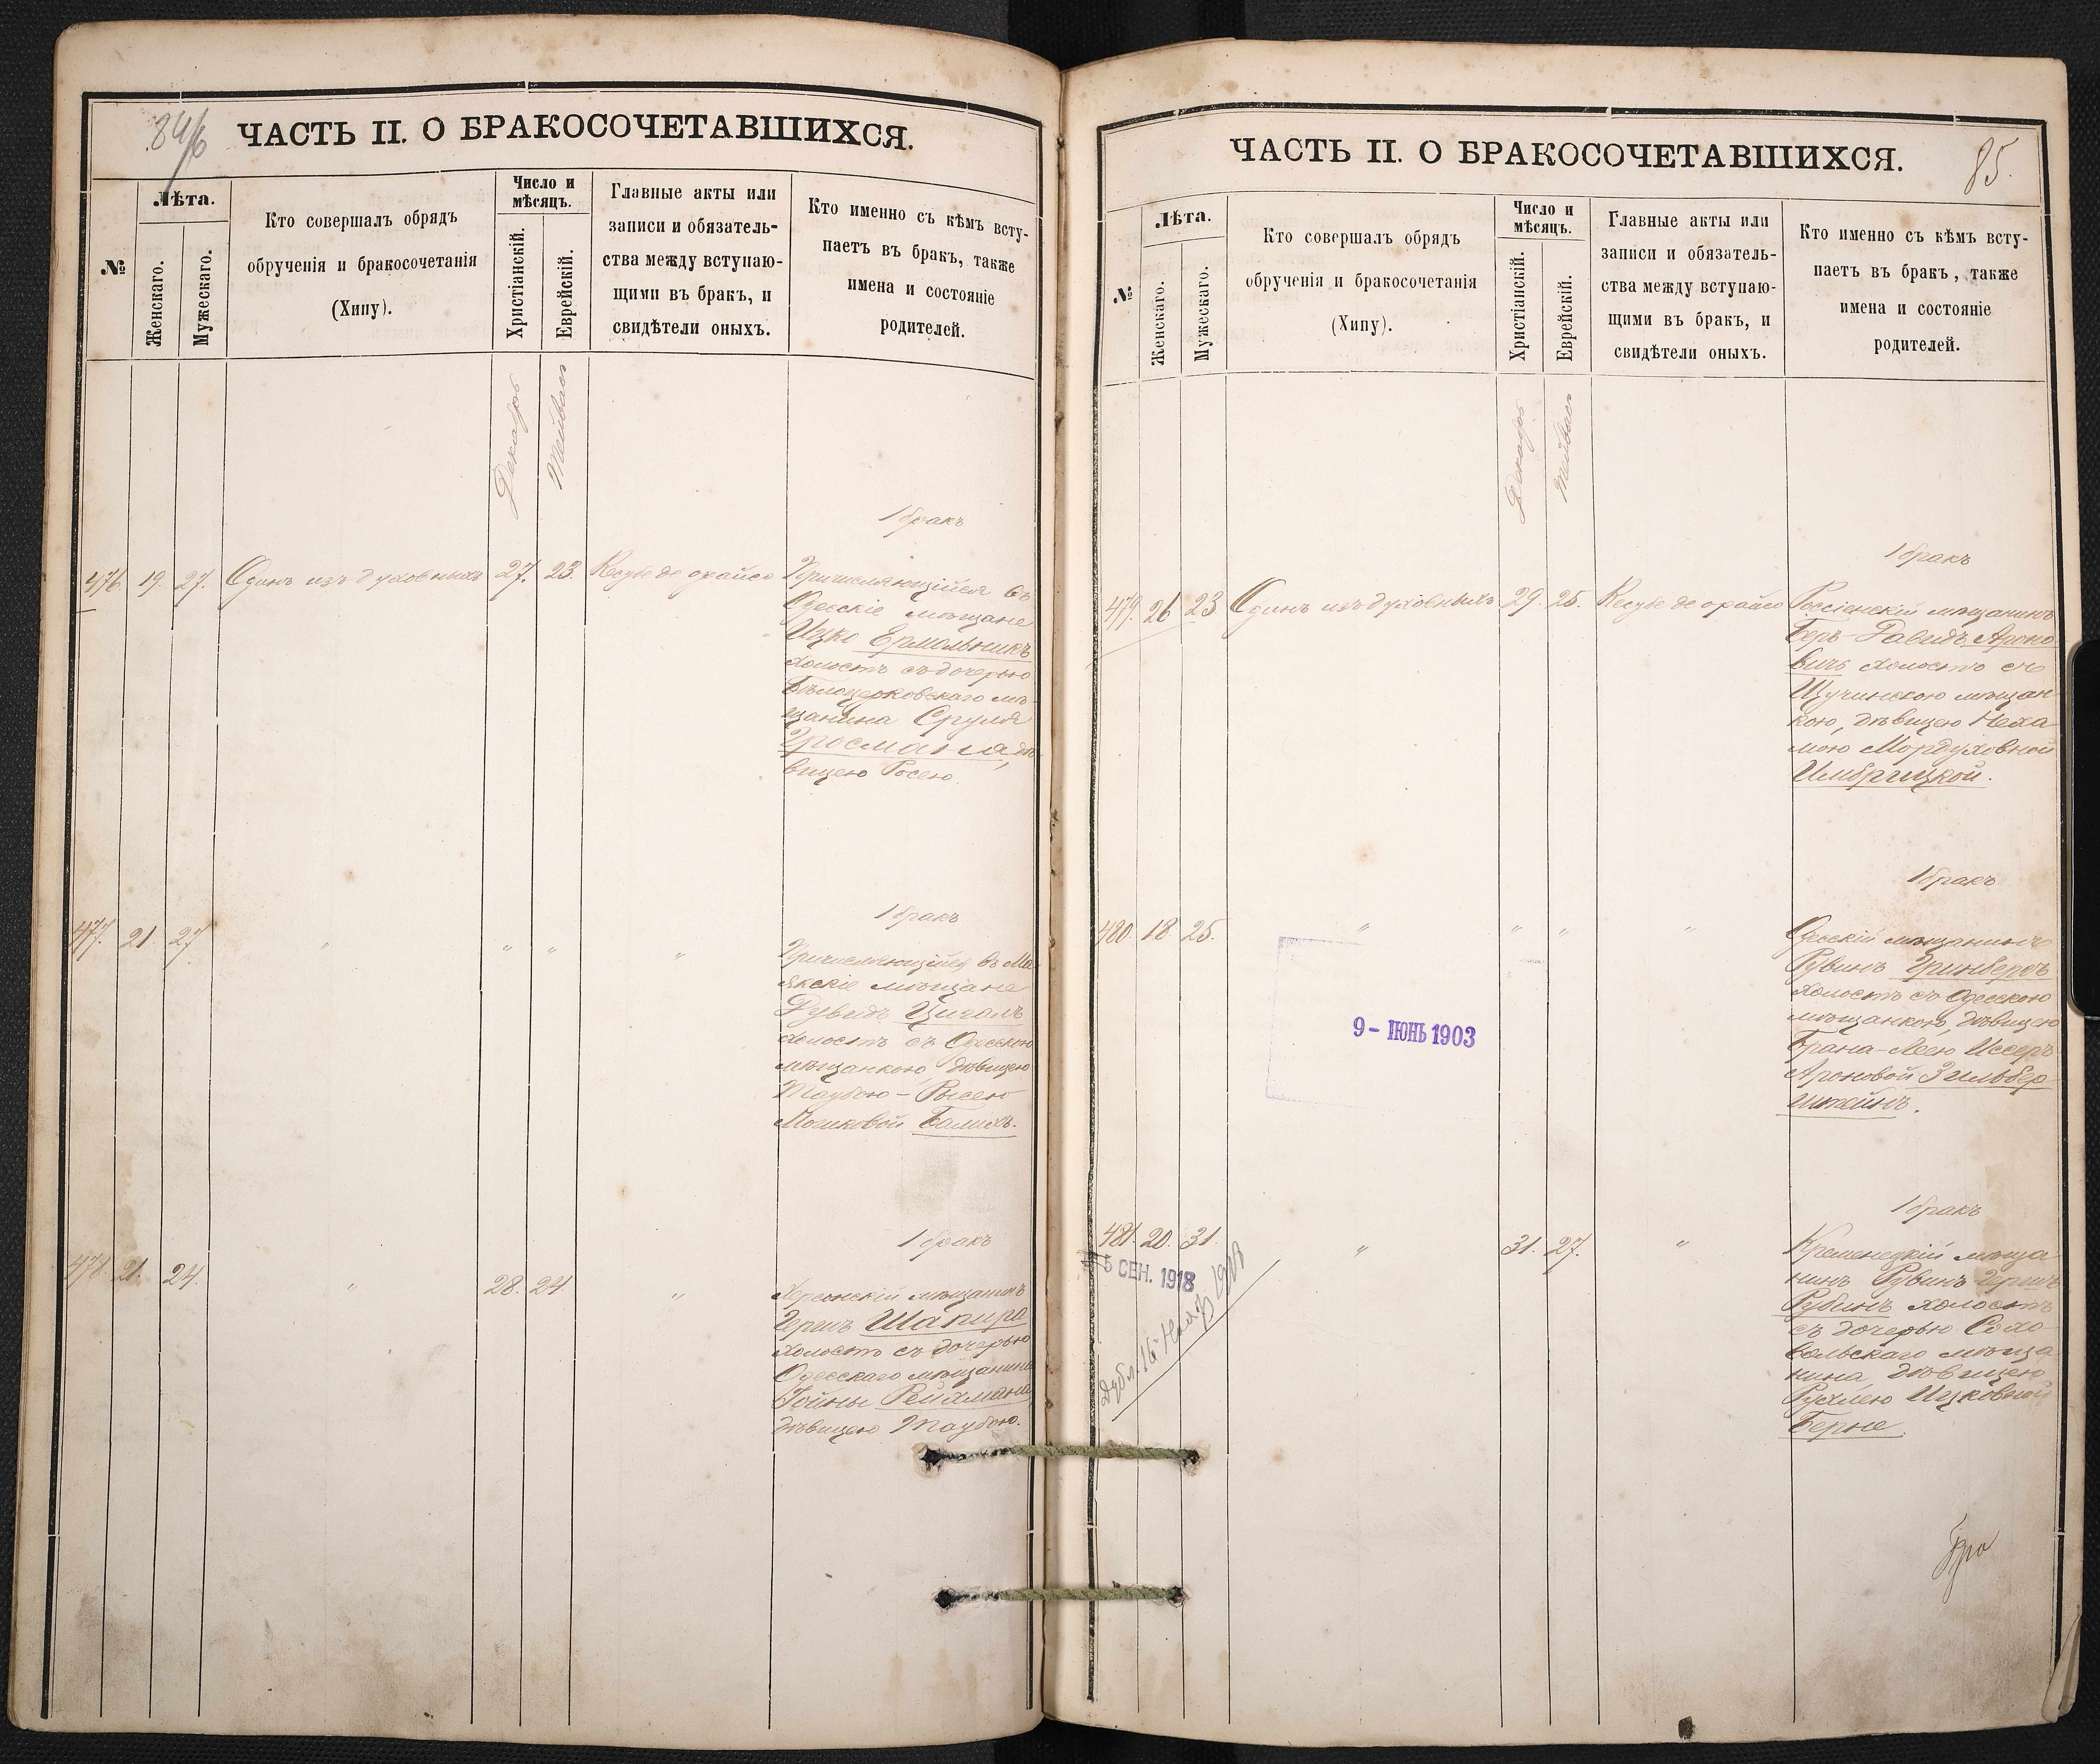 84/б
ЧАСТЬ II. О БРАКОСОЧЕТАВШИХСЯ.
№
Лѣта.
Женскаго.
Мужескаго.
Кто совершалъ обрядъ
обрученія и бракосочетанія
(Хипу).
Число и
мѣсяцъ.
Христіанскій.
Еврейскій.
Главные акты или
записи и обязатель-
ства между вступаю-
щими въ бракъ, и
свидѣтели оныхъ.
Кто именно съ кѣмъ всту-
паетъ въ бракъ, также
имена и состояніе
родителей.
Декабрь
Тейвас
1 бракъ
476. 19. 27. Одинъ изъ духовныхъ 27. 23. Кесубе де орайсо
Причисляющійся въ
Одесскіе мѣщане
Ицко Ермольникъ
холостъ съ дочерью
Бѣлоцерковскаго мѣ-
щанина Сруля
Гросмана, дѣ-
вицею Росею
1 бракъ
477. 21. 27. " " " "
Причисляющійся въ Ма
якскіе мѣщане
Дувидъ Цигалъ
холостъ съ Одесскою
мѣщанкою, дѣвицею
Таубою-Рысею
Мошковой Балихъ.
1 бракъ
478. 21. 24. " 28. 24. "
Херсонскій мѣщанинъ
Гершъ Шапиро
холостъ съ дочерью
Одесскаго мѣщанина
Іойны Рейхмана,
дѣвицею Таубою.
ЧАСТЬ II. О БРАКОСОЧЕТАВШИХСЯ.
85.
№
Лѣта.
Женскаго.
Мужескаго.
Кто совершалъ обрядъ
обрученія и бракосочетанія
(Хипу).
Число и
мѣсяцъ.
Христіанскій.
Еврейскій.
Главные акты или
записи и обязатель-
ства между вступаю-
щими въ бракъ, и
свидѣтели оныхъ.
Кто именно съ кѣмъ всту-
паетъ въ бракъ, также
имена и состояніе
родителей.
Декабрь
Тейвас
1 бракъ
479. 26 23 Одинъ изъ духовныхъ 29. 25. Кесубе де орайсо
Россіенскій мѣщанинъ
Беръ-Давидъ Ароно
вичъ холостъ съ
Щучинскою мѣщан
кою, дѣвицею Неха
мою Мордуховной
Имбрицкой.
1 бракъ
480. 18 25. " " " "
Одесскій мѣщанинъ
Рувинъ Гринбергъ
холостъ съ Одесскою
мѣщанкою, дѣвицею
Брана-Леею Иссеръ-
Ароновой Зильбер
штейнъ.
9- ІЮНЬ 1903
1 бракъ
481. 20. 31. " 31. 27. "
Кременецкій мѣща
нинъ Рувинъ Гершъ
Рубинъ холостъ
съ дочерью Сохо
вольскаго мѣща
нина, дѣвицею
Рухлею Ицковной
Берне.
5 СЕН. 1918